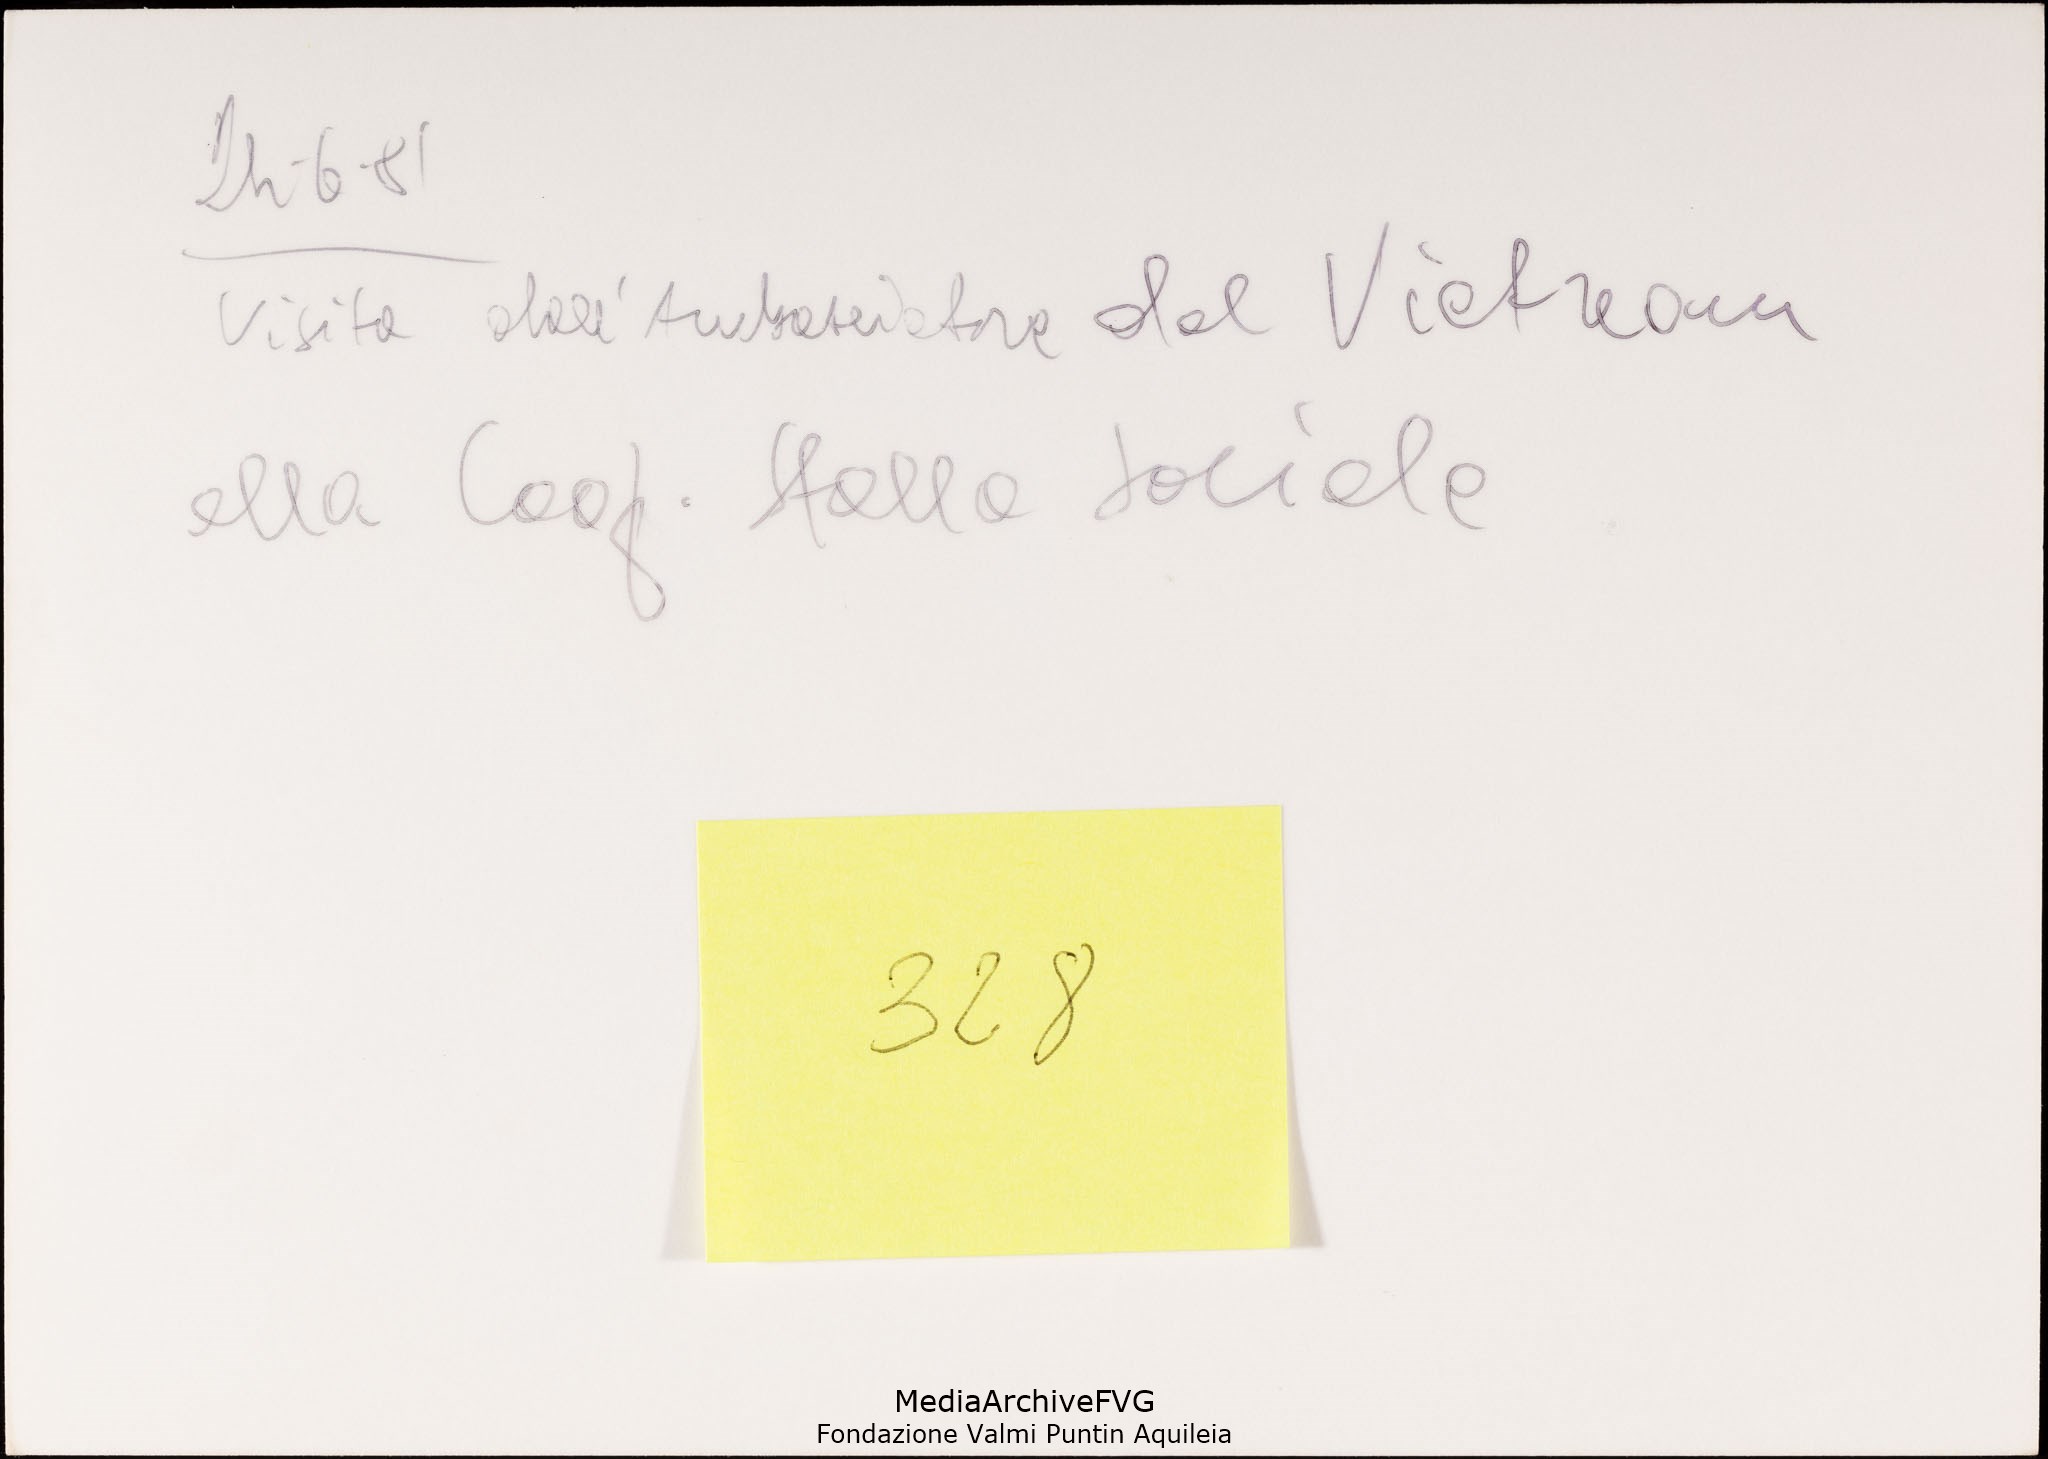 24-6-81
Visita dell'Ambasciatore del Vietnam
alla Coop. Stalla Sociale
328
MediaArchiveFVG
Fondazione Valmi Puntin Aquileia